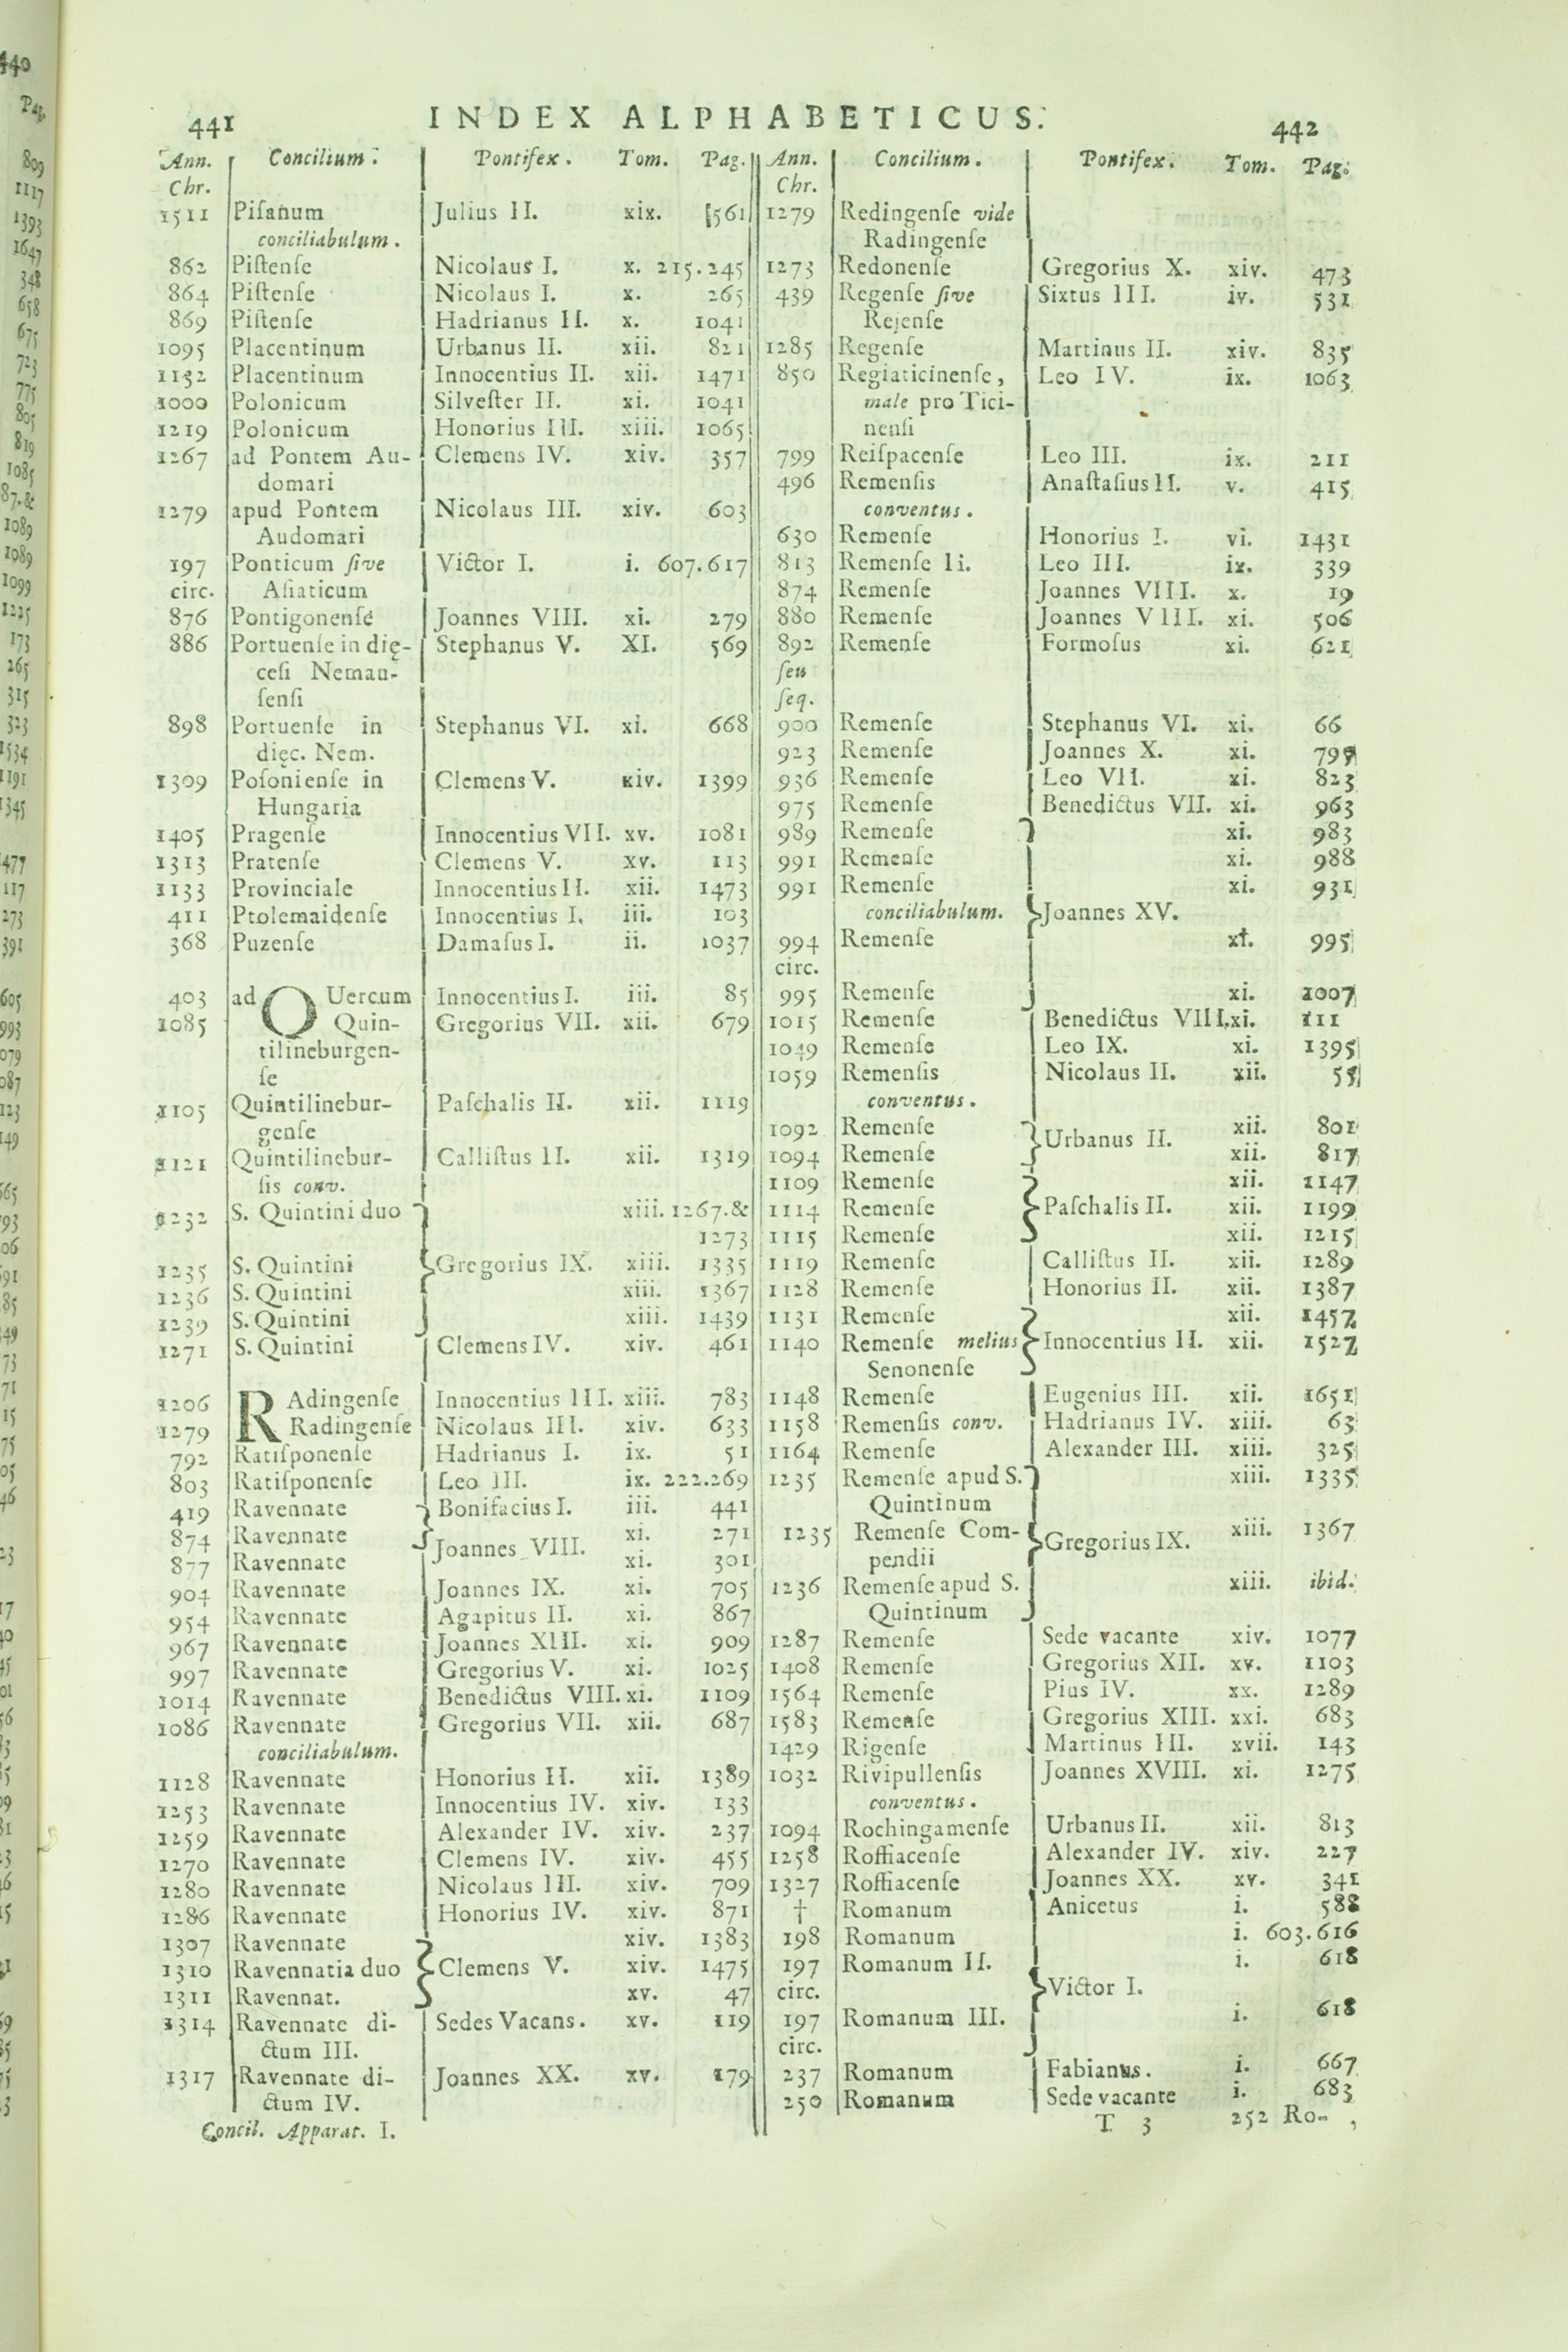 441 INDEX ALPHABETICUS. 442
Ann. Concilium. Pontifex. Tom. Pag.
Chr.
1511 Piſanum Julius II. xix. 561
conciliabulum.
862 Piſtenſe Nicolaus I. x. 215.245
864 Piſtenſe Nicolaus I. x. 265
869 Piſtenſe Hadrianus II. x. 1041
1095 Placentinum Urbanus II. xii. 821
1132 Placentinum Innocentius II. xii. 1471
1000 Polonicum Silveſter II. xi. 1041
1219 Polonicum Honorius III. xiii. 1065
1267 ad Pontem Au- Clemens IV. xiv. 357
domari
1279 apud Pontem Nicolaus III. xiv. 603
Audomari
197 Ponticum ſive Victor I. i. 607.617
circ. Aſiaticum
876 Pontigonenſe Joannes VIII. xi. 279
886 Portuenſe in dię- Stephanus V. XI. 569
ceſi Nemau-
ſenſi
898 Portuenſe in Stephanus VI. xi. 668
dięc. Nem.
1309 Poſonienſe in Clemens V. xiv. 1399
Hungaria
1405 Pragenſe Innocentius VII. xv. 1081
1313 Pratenſe Clemens V. xv. 113
1133 Provinciale Innocentius II. xii. 1473
411 Ptolemaidenſe Innocentius I. iii. 103
368 Puzenſe Damaſus I. ii. 1037
403 ad QUercum Innocentius I. iii. 85
1085 Quin- Gregorius VII. xii. 679
tilineburgen-
ſe
1105 Quintilinebur- Paſchalis II. xii. 1119
genſe
1121 Quintilinebur- Calliſtus II. xii. 1319
ſis conv.
1232 S. Quintini duo xiii. 1267.&
1273
1235 S. Quintini Gregorius IX. xiii. 1335
1236 S. Quintini xiii. 1367
1239 S. Quintini xiii. 1439
1271 S. Quintini Clemens IV. xiv. 461
1206 RAdingenſe Innocentius III. xiii. 783
1279 Radingenſe Nicolaus III. xiv. 633
792 Ratiſponenſe Hadrianus I. ix. 51
803 Ratiſponenſe Leo III. ix. 222.269
419 Ravennate Bonifacius I. iii. 441
874 Ravennate xi. 271
Joannes VIII.
877 Ravennate xi. 301
904 Ravennate Joannes IX. xi. 705
954 Ravennate Agapitus II. xi. 867
967 Ravennate Joannes XIII. xi. 909
997 Ravennate Gregorius V. xi. 1025
1014 Ravennate Benedictus VIII. xi. 1109
1086 Ravennate Gregorius VII. xii. 687
conciliabulum.
1128 Ravennate Honorius II. xii. 1389
1253 Ravennate Innocentius IV. xiv. 133
1259 Ravennate Alexander IV. xiv. 237
1270 Ravennate Clemens IV. xiv. 455
1280 Ravennate Nicolaus III. xiv. 709
1286 Ravennate Honorius IV. xiv. 871
1307 Ravennate xiv. 1383
1310 Ravennatia duo Clemens V. xiv. 1475
1311 Ravennat. xv. 47
1314 Ravennate di- Sedes Vacans. xv. 119
ctum III.
1317 Ravennate di- Joannes XX. xv. 179
ctum IV.
Concil. Apparat. I.
Ann. Concilium. Pontifex. Tom. Pag.
Chr.
1279 Redingenſe vide
Radingenſe
1273 Redonenſe Gregorius X. xiv. 473
439 Regenſe ſive Sixtus III. iv. 531
Rejenſe
1285 Regenſe Martinus II. xiv. 835
850 Regiaticinenſe, Leo IV. ix. 1063
male pro Tici-
nenſi
799 Reiſpacenſe Leo III. ix. 211
496 Remenſis Anaſtaſius II. v. 415
conventus.
630 Remenſe Honorius I. vi. 1431
813 Remenſe Ii. Leo III. ix. 339
874 Remenſe Joannes VIII. x. 19
880 Remenſe Joannes VIII. xi. 506
892 Remenſe Formoſus xi. 621
ſeu
ſeq.
900 Remenſe Stephanus VI. xi. 66
923 Remenſe Joannes X. xi.
936 Remenſe Leo VII. xi. 823
975 Remenſe Benedictus VII. xi. 963
989 Remenſe xi. 983
991 Remenſe xi. 988
991 Remenſe xi. 931
conciliabulum. Joannes XV.
994 Remenſe xi. 995
circ.
995 Remenſe xi. 1007
1015 Remenſe Benedictus VIII. xi. 111
1049 Remenſe Leo IX. xi. 1395
1059 Remenſis Nicolaus II. xii. 55
conventus.
1092 Remenſe xii. 801
Urbanus II.
1094 Remenſe xii. 817
1109 Remenſe xii. 1147
1114 Remenſe Paſchalis II. xii. 1199
1115 Remenſe xii. 1215
1119 Remenſe Calliſtus II. xii. 1289
1128 Remenſe Honorius II. xii. 1387
1131 Remenſe xii. 1457
1140 Remenſe melius Innocentius II. xii. 1527
Senonenſe
1148 Remenſe Eugenius III. xii. 1651
1158 Remenſis conv. Hadrianus IV. xiii. 63
1164 Remenſe Alexander III. xiii. 325
1235 Remenſe apud S. xiii. 1335
Quintinum
1235 Remenſe Com- Gregorius IX. xiii. 1367
pendii
1236 Remenſe apud S. xiii. ibid.
Quintinum
1287 Remenſe Sede vacante xiv. 1077
1408 Remenſe Gregorius XII. xv. 1103
1564 Remenſe Pius IV. xx. 1289
1583 Remenſe Gregorius XIII. xxi. 683
1429 Rigenſe Martinus III. xvii. 143
1032 Rivipullenſis Joannes XVIII. xi. 1275
conventus.
1094 Rochingamenſe Urbanus II. xii. 813
1258 Roffiacenſe Alexander IV. xiv. 227
1327 Roffiacenſe Joannes XX. xv. 341
† Romanum Anicetus i. 588
198 Romanum i. 603.616
197 Romanum II. i. 618
circ. Victor I.
197 Romanum III. i. 618
circ.
237 Romanum Fabianus. i. 667
250 Romanum Sede vacante i. 683
T 3 252 Ro-
440
Pag.
809
1117
1393
1647
348
658
675
723
775
805
819
1085
87.&
1089
1089
1099
1225
173
265
315
323
1534
1191
1345
477
117
273
391
605
993